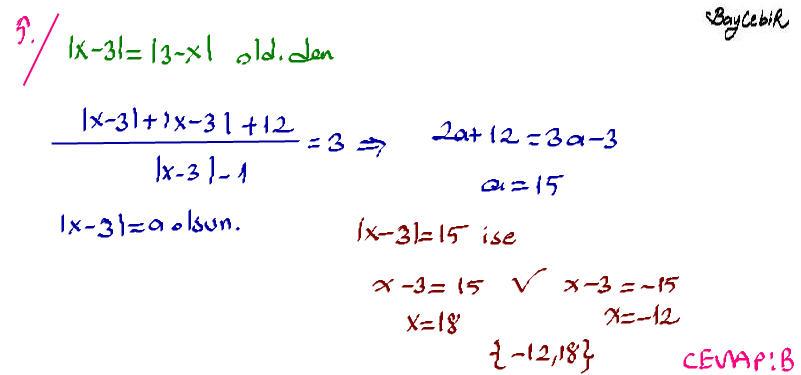 BayCebiR
5. |x-3|=|3-x| old.den
|x-3|+|x-3|+12
|x-3|-1
=3 ⇒ 2a+12=3a-3
a=15
|x-3|=a olsun.
|x-3|=15 ise
x-3=15 ∨ x-3=-15
x=18 x=-12
{-12,18}
CEVAP:B